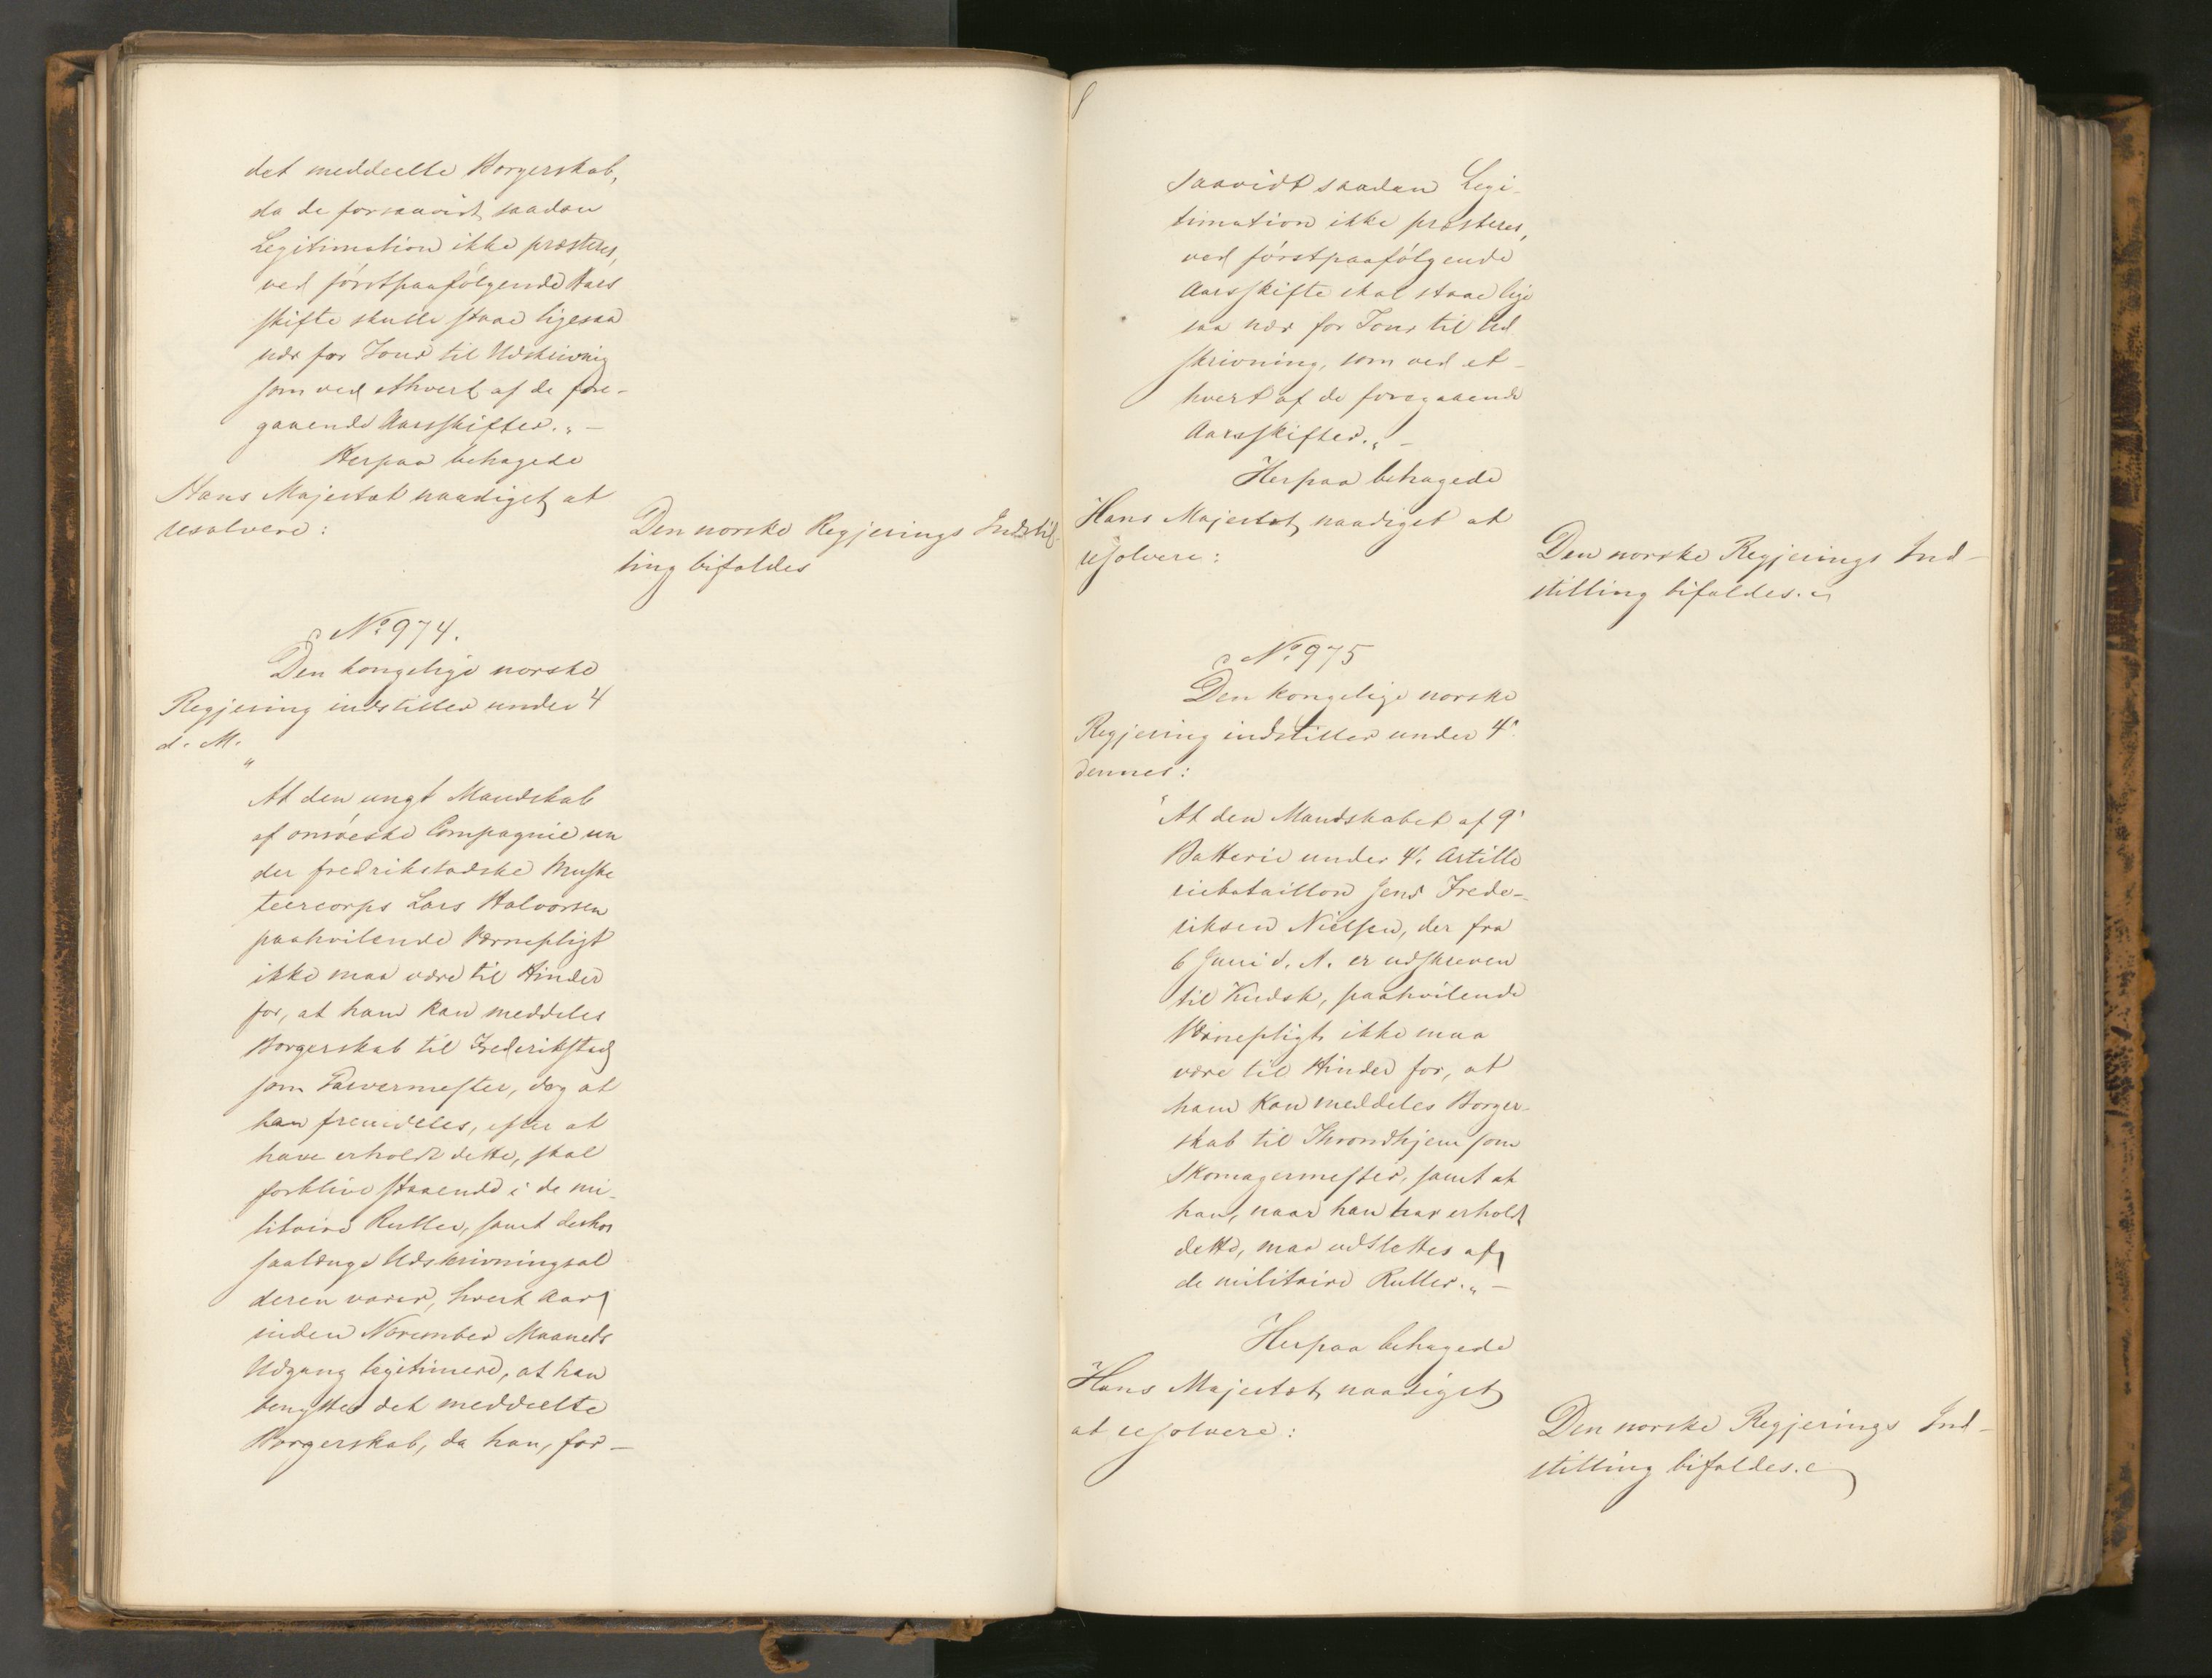 det meddeelte Borgerskab,
da de forsaavidt saadan
Legitimation ikke præsteres,
ved førstpaafølgende Aars
skifte skulle staae ligesaa
nær for Tour til Udskrivnig
som ved ethvert af de fore-
gaaende Aarsskifter." —
Herpaa behagede
Hans Majestæt naadigst at
resolvere:
Den norske Regjerings Indstil-
ling bifaldes
No 974.
Den kongelige norske
Regjering indstiller under 4
d. M.
"
At den ungt Mandskab
af onsøeske Compagnie un
der fredrikstadske Muske
teercorps Lars Halvorsen
paahvilende Værnepligt
ikke maa være til Hinder
for, at ham kan meddeles
Borgerskab til Frederikstad
som Farvermester, dog at
han fremdeles, efter at
have erholdt dette, skal
forblive staaende i de mi-
litaire Ruller, samt derhos
saalænge Udskrivningsal
deren varer, hvert Aar
inden November Maaneds
Udgang legitimere, at han
benytter det meddeelte
Borgerskab, da han, for-
saavidt saadan Legi-
timation ikke præsteres,
ved førstpaafølgende
Aarsskifte skal staae lige
saa nær for Tour til Ud
skrivning, som ved et-
hvert af de foregaaende
Aarsskifter." —
Herpaa behagede
Hans Majestæt naadigst at
resolvere:
Den norske Regjerings Ind-
stilling bifaldes.
No 975
Den kongelige norske
Regjering indstiller under 4.
dennes:
"At den Mandskabet af 9.
Batterie under 4. Artille
riebataillon Jens Frede-
riksen Nielsen, der fra
6 Juni d. A. er udskreven
til Kudsk, paahvilende
Værnepligt ikke maa
være til Hinder for, at
ham kan meddeles Borger-
skab til Throndhjem som
Skomagermester, samt at
han, naar han har erholdt
dette, maa udslettes af
de militaire Ruller." —
Herpaa behagede
Hans Majestæt naadigst
at resolvere:
Den norske Regjerings Ind-
stilling bifaldes.